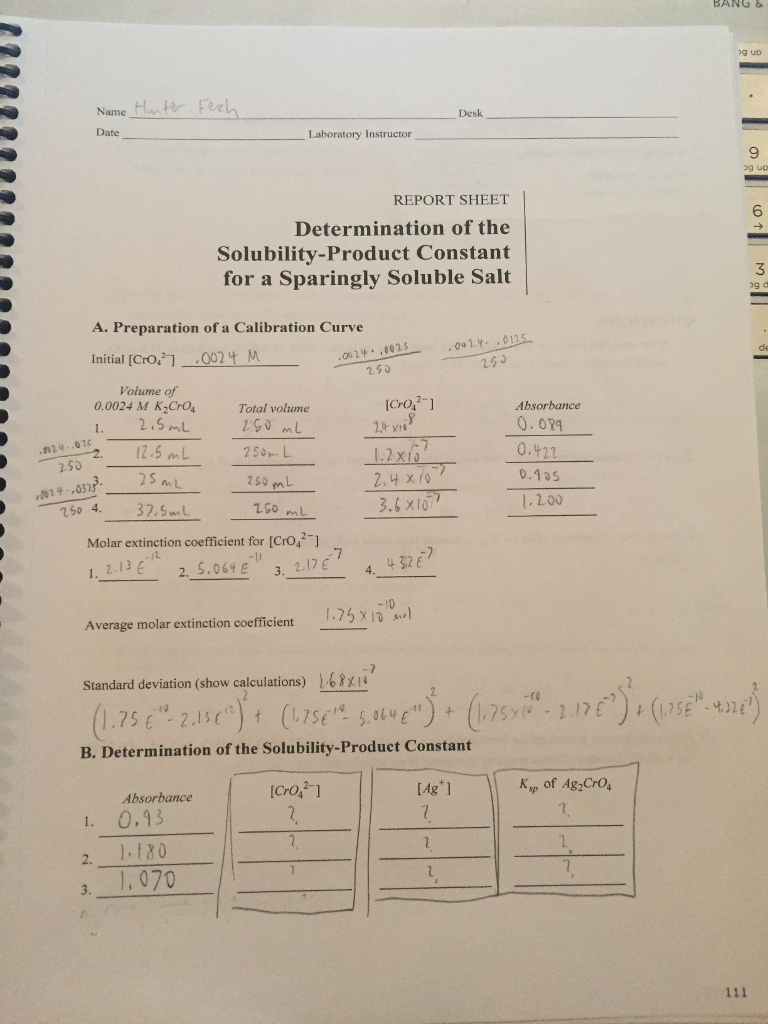 BANG &
og up
Name Hunter Fech Desk
Date Laboratory Instructor
9
og up
6
→
3
og d
de
REPORT SHEET
Determination of the
Solubility-Product Constant
for a Sparingly Soluble Salt
A. Preparation of a Calibration Curve
Initial [CrO₄²⁻] .0024 M .0024 · .0025 / 250 .0024 · .0125 / 250
Volume of
0.0024 M K₂CrO₄ Total volume [CrO₄²⁻] Absorbance
1. 2.5 mL 250 mL 2.4 x10⁻⁸ 0.089
.0024 · .025 / 250 2. 12.5 mL 250 mL 1.2 x10⁻⁷ 0.422
.0024 · .0375 / 250 3. 25 mL 250 mL 2.4 x 10⁻⁷ 0.905
4. 37.5 mL 250 mL 3.6 x10⁻⁷ 1.200
Molar extinction coefficient for [CrO₄²⁻]
1. 2.13 E⁻¹² 2. 5.064 E⁻¹¹ 3. 2.17 E⁻⁷ 4. 4.32 E⁻⁷
Average molar extinction coefficient 1.75 x 10⁻¹⁰ mol
Standard deviation (show calculations) 1.68x10⁻⁷
(1.75 E⁻¹⁰ - 2.13 E⁻¹²)² + (1.75E⁻¹⁰ - 5.064 E⁻¹¹)² + (1.75x10⁻¹⁰ - 2.17 E⁻⁷)² + (1.75E⁻¹⁰ - 4.32E⁻⁷)²
B. Determination of the Solubility-Product Constant
Absorbance [CrO₄²⁻] [Ag⁺] Kₛₚ of Ag₂CrO₄
1. 0.93 ? ? ?
2. 1.180 ? ? ?
3. 1.070 ? ? ?
111